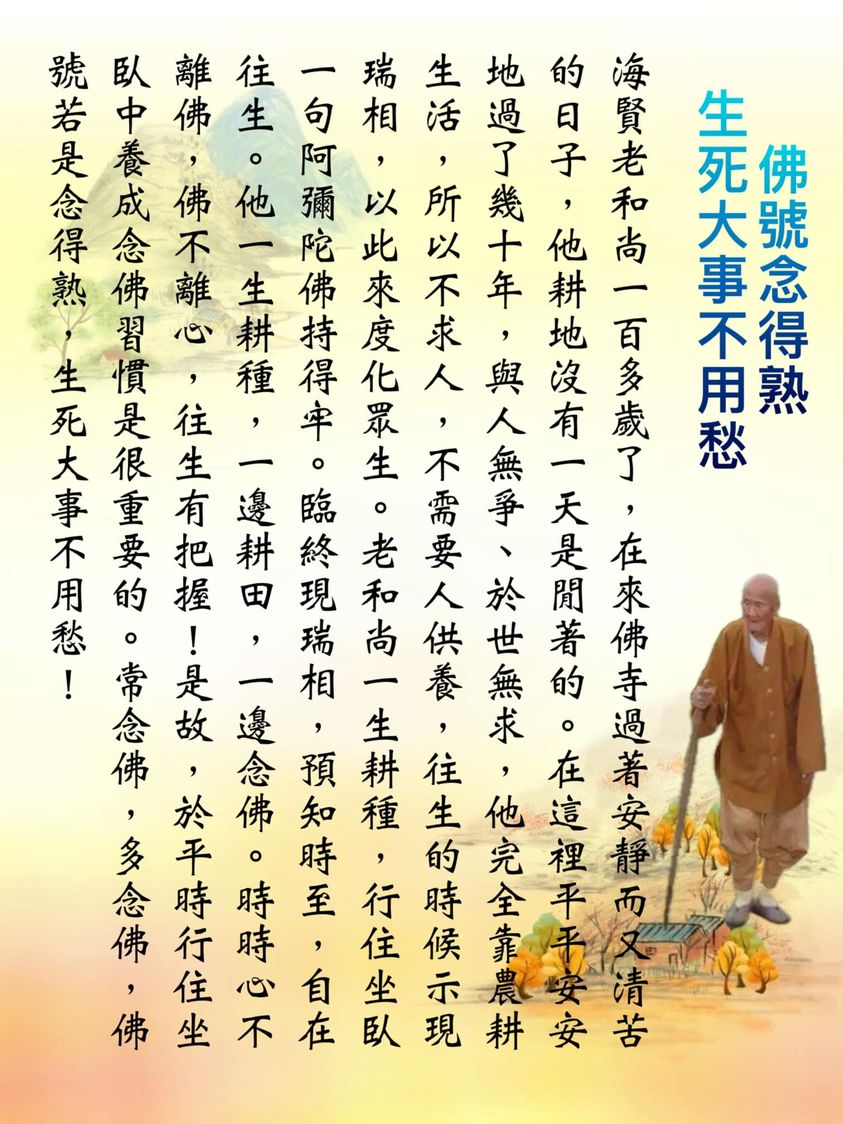 佛號念得熟
生死大事不用愁
海賢老和尚一百多歲了，在來佛寺過著安靜而又清苦
的日子，他耕地沒有一天是閒著的。在這裡平平安安
地過了幾十年，與人無爭、於世無求，他完全靠農耕
生活，所以不求人，不需要人供養，往生的時候示現
瑞相，以此來度化眾生。老和尚一生耕種，行住坐臥
一句阿彌陀佛持得牢。臨終現瑞相，預知時至，自在
往生。他一生耕種，一邊耕田，一邊念佛。時時心不
離佛，佛不離心，往生有把握！是故，於平時行住坐
臥中養成念佛習慣是很重要的。常念佛，多念佛，佛
號若是念得熟，生死大事不用愁！